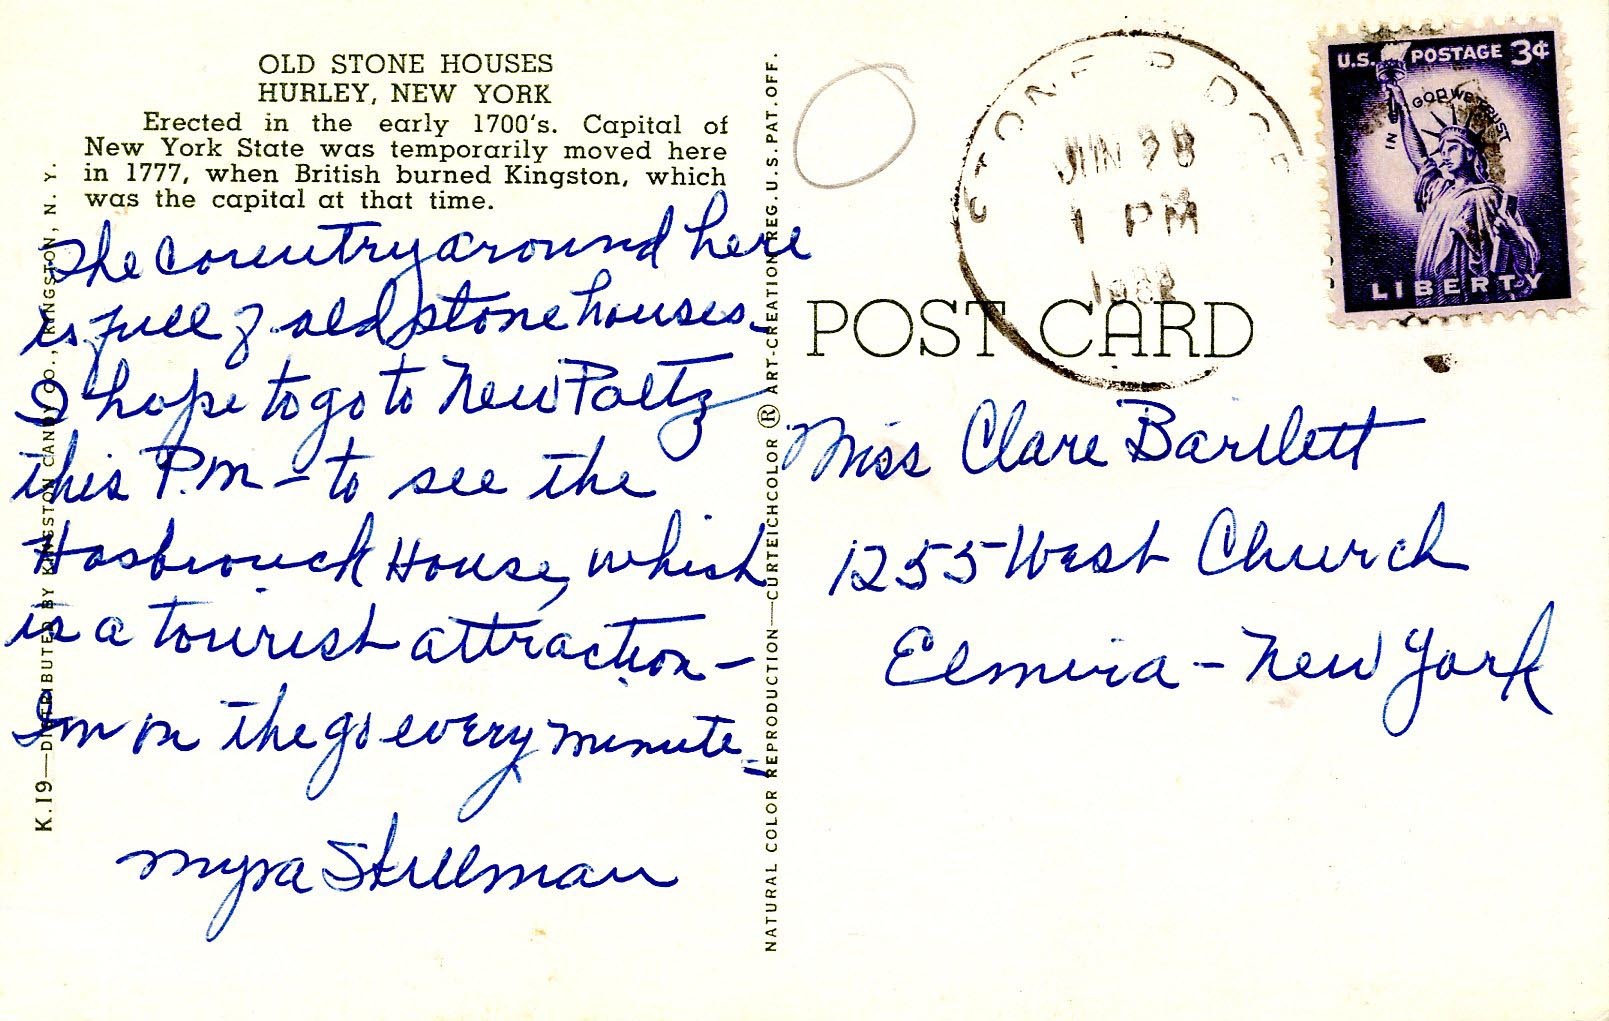 OLD STONE HOUSES
HURLEY, NEW YORK
Erected in the early 1700's. Capital of
New York State was temporarily moved here
in 1777, when British burned Kingston, which
was the capital at that time.
The country around here
is full of old stone houses.
I hope to go to New Paltz
this P.M – to see the
Hasbrouck House, which
is a tourist attraction –
I'm on the go every minute –
Myra Stillman
K.19—DISTRIBUTED BY KINGSTON CANDY CO., KINGSTON, N. Y.
NATURAL COLOR REPRODUCTION—CURTEICHCOLOR ® ART-CREATION REG. U.S. PAT. OFF.
STONE RIDGE
JUN
1 PM
U.S. POSTAGE 3¢
IN GOD WE TRUST
LIBERTY
POST CARD
Miss Clare Bartlett
1255 West Church
Elmira – New York